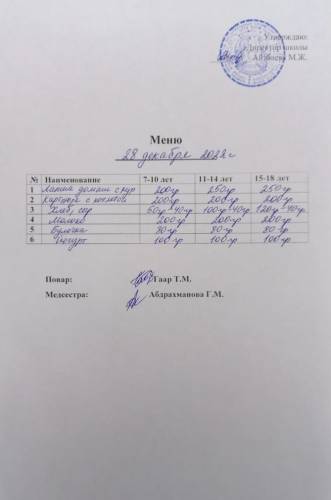 Утверждаю:
Директор школы
М.Ж.
Меню
28 декабря 2022 г
№ Наименование 7-10 лет 11-14 лет 15-18 лет
1 Лапша домаш с кур 200гр 250гр 250гр
2 Картофель с котлетой 200гр 200гр 200гр
3 Хлеб, сыр 60гр 40гр 100гр 40гр 120гр 40гр
4 Молоко 200гр 200гр 200гр
5 Булочка 80гр 80гр 80гр
6 Йогурт 100гр 100гр 100гр
Повар: Гаар Т.М.
Медсестра: Абдрахманова Г.М.